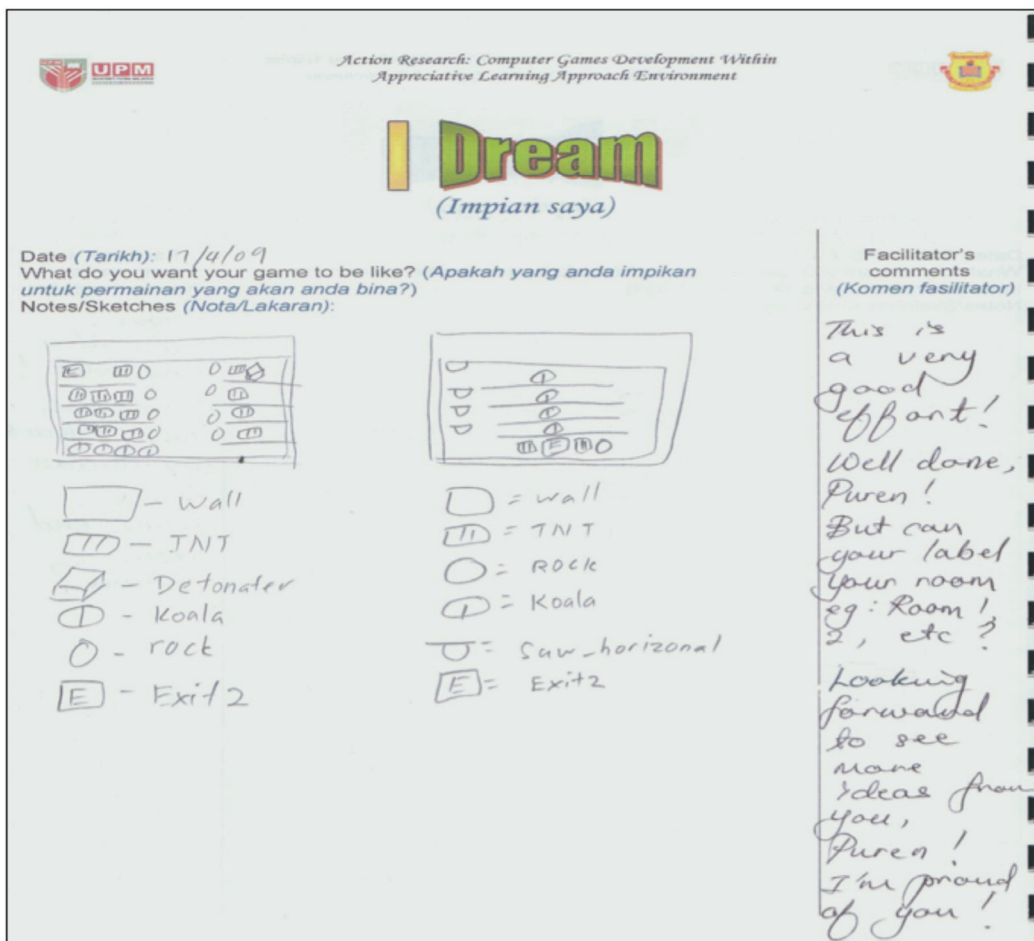 UPM
Action Research: Computer Games Development Within
Appreciative Learning Approach Environment
I Dream
(Impian saya)
Date (Tarikh): 17/4/09
What do you want your game to be like? (Apakah yang anda impikan
untuk permainan yang akan anda bina?)
Notes/Sketches (Nota/Lakaran):
E
- wall
- TNT
- Detonater
- Koala
- rock
E - Exit 2
E
= wall
= TNT
= ROCK
= Koala
= Saw_horizonal
E = Exit2
Facilitator's
comments
(Komen fasilitator)
This is
a very
good
effort!
Well done,
Puren!
But can
your label
your room
eg: Room 1,
2, etc?
Looking
forward
to see
more
ideas from
you,
Puren!
I'm proud
of you!